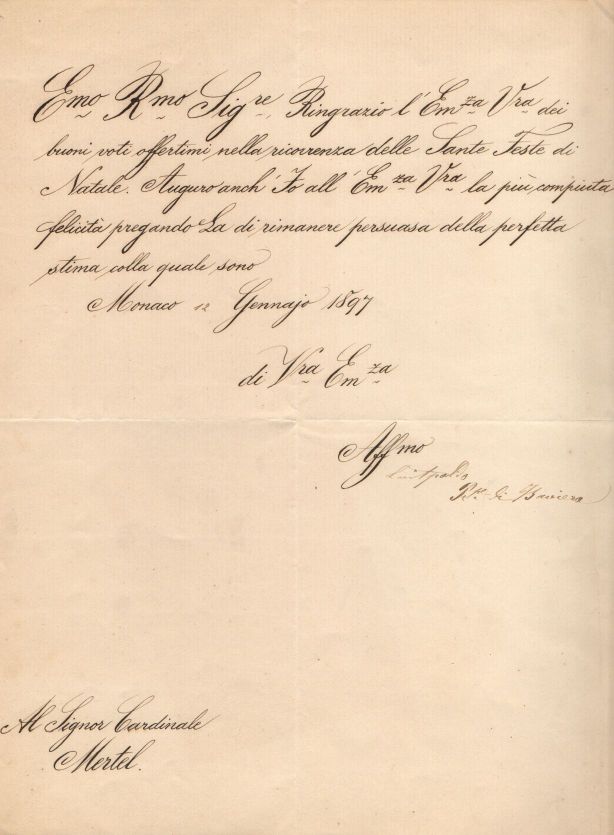 Emo Rmo Sigre, Ringrazio l'Emza Vra dei
buoni voti offertimi nella ricorrenza delle Sante Feste di
Natale. Auguro anch'Io all'Emza Vra la più compiuta
felicità pregando La di rimanere persuasa della perfetta
stima colla quale sono
Monaco 12 Gennajo 1897
di Vra Emza
Affmo
Luitpoldo
Ppe di Baviera
Al Signor Cardinale
Mertel.